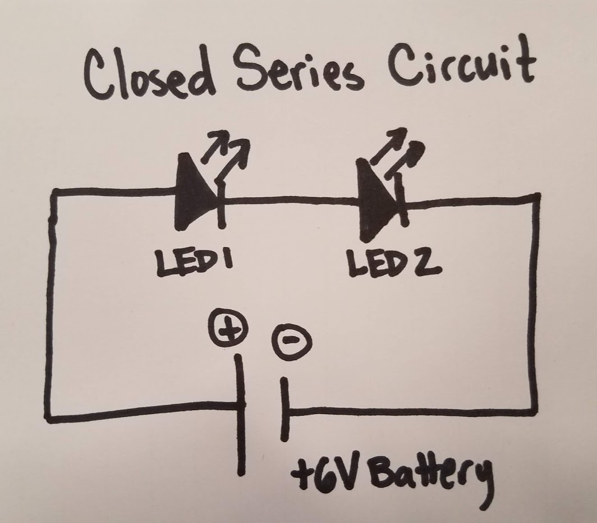 Closed Series Circuit
LED1 LED2
+ -
+6V Battery